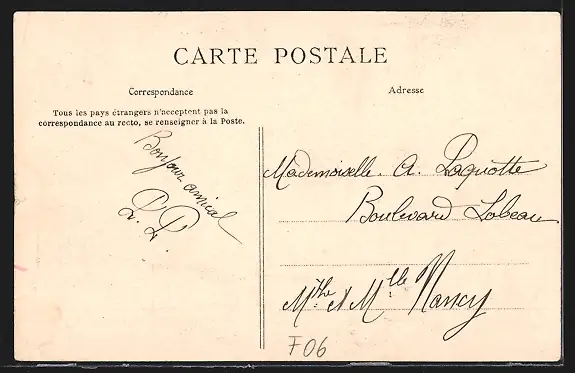 CARTE POSTALE
Correspondance
Tous les pays étrangers n'acceptent pas la
correspondance au recto, se renseigner à la Poste.
Bonjour amical
Adresse
Mademoiselle. A. Paquotte
Boulevard Lobeau
Mthe et Mlle Nancy
F06